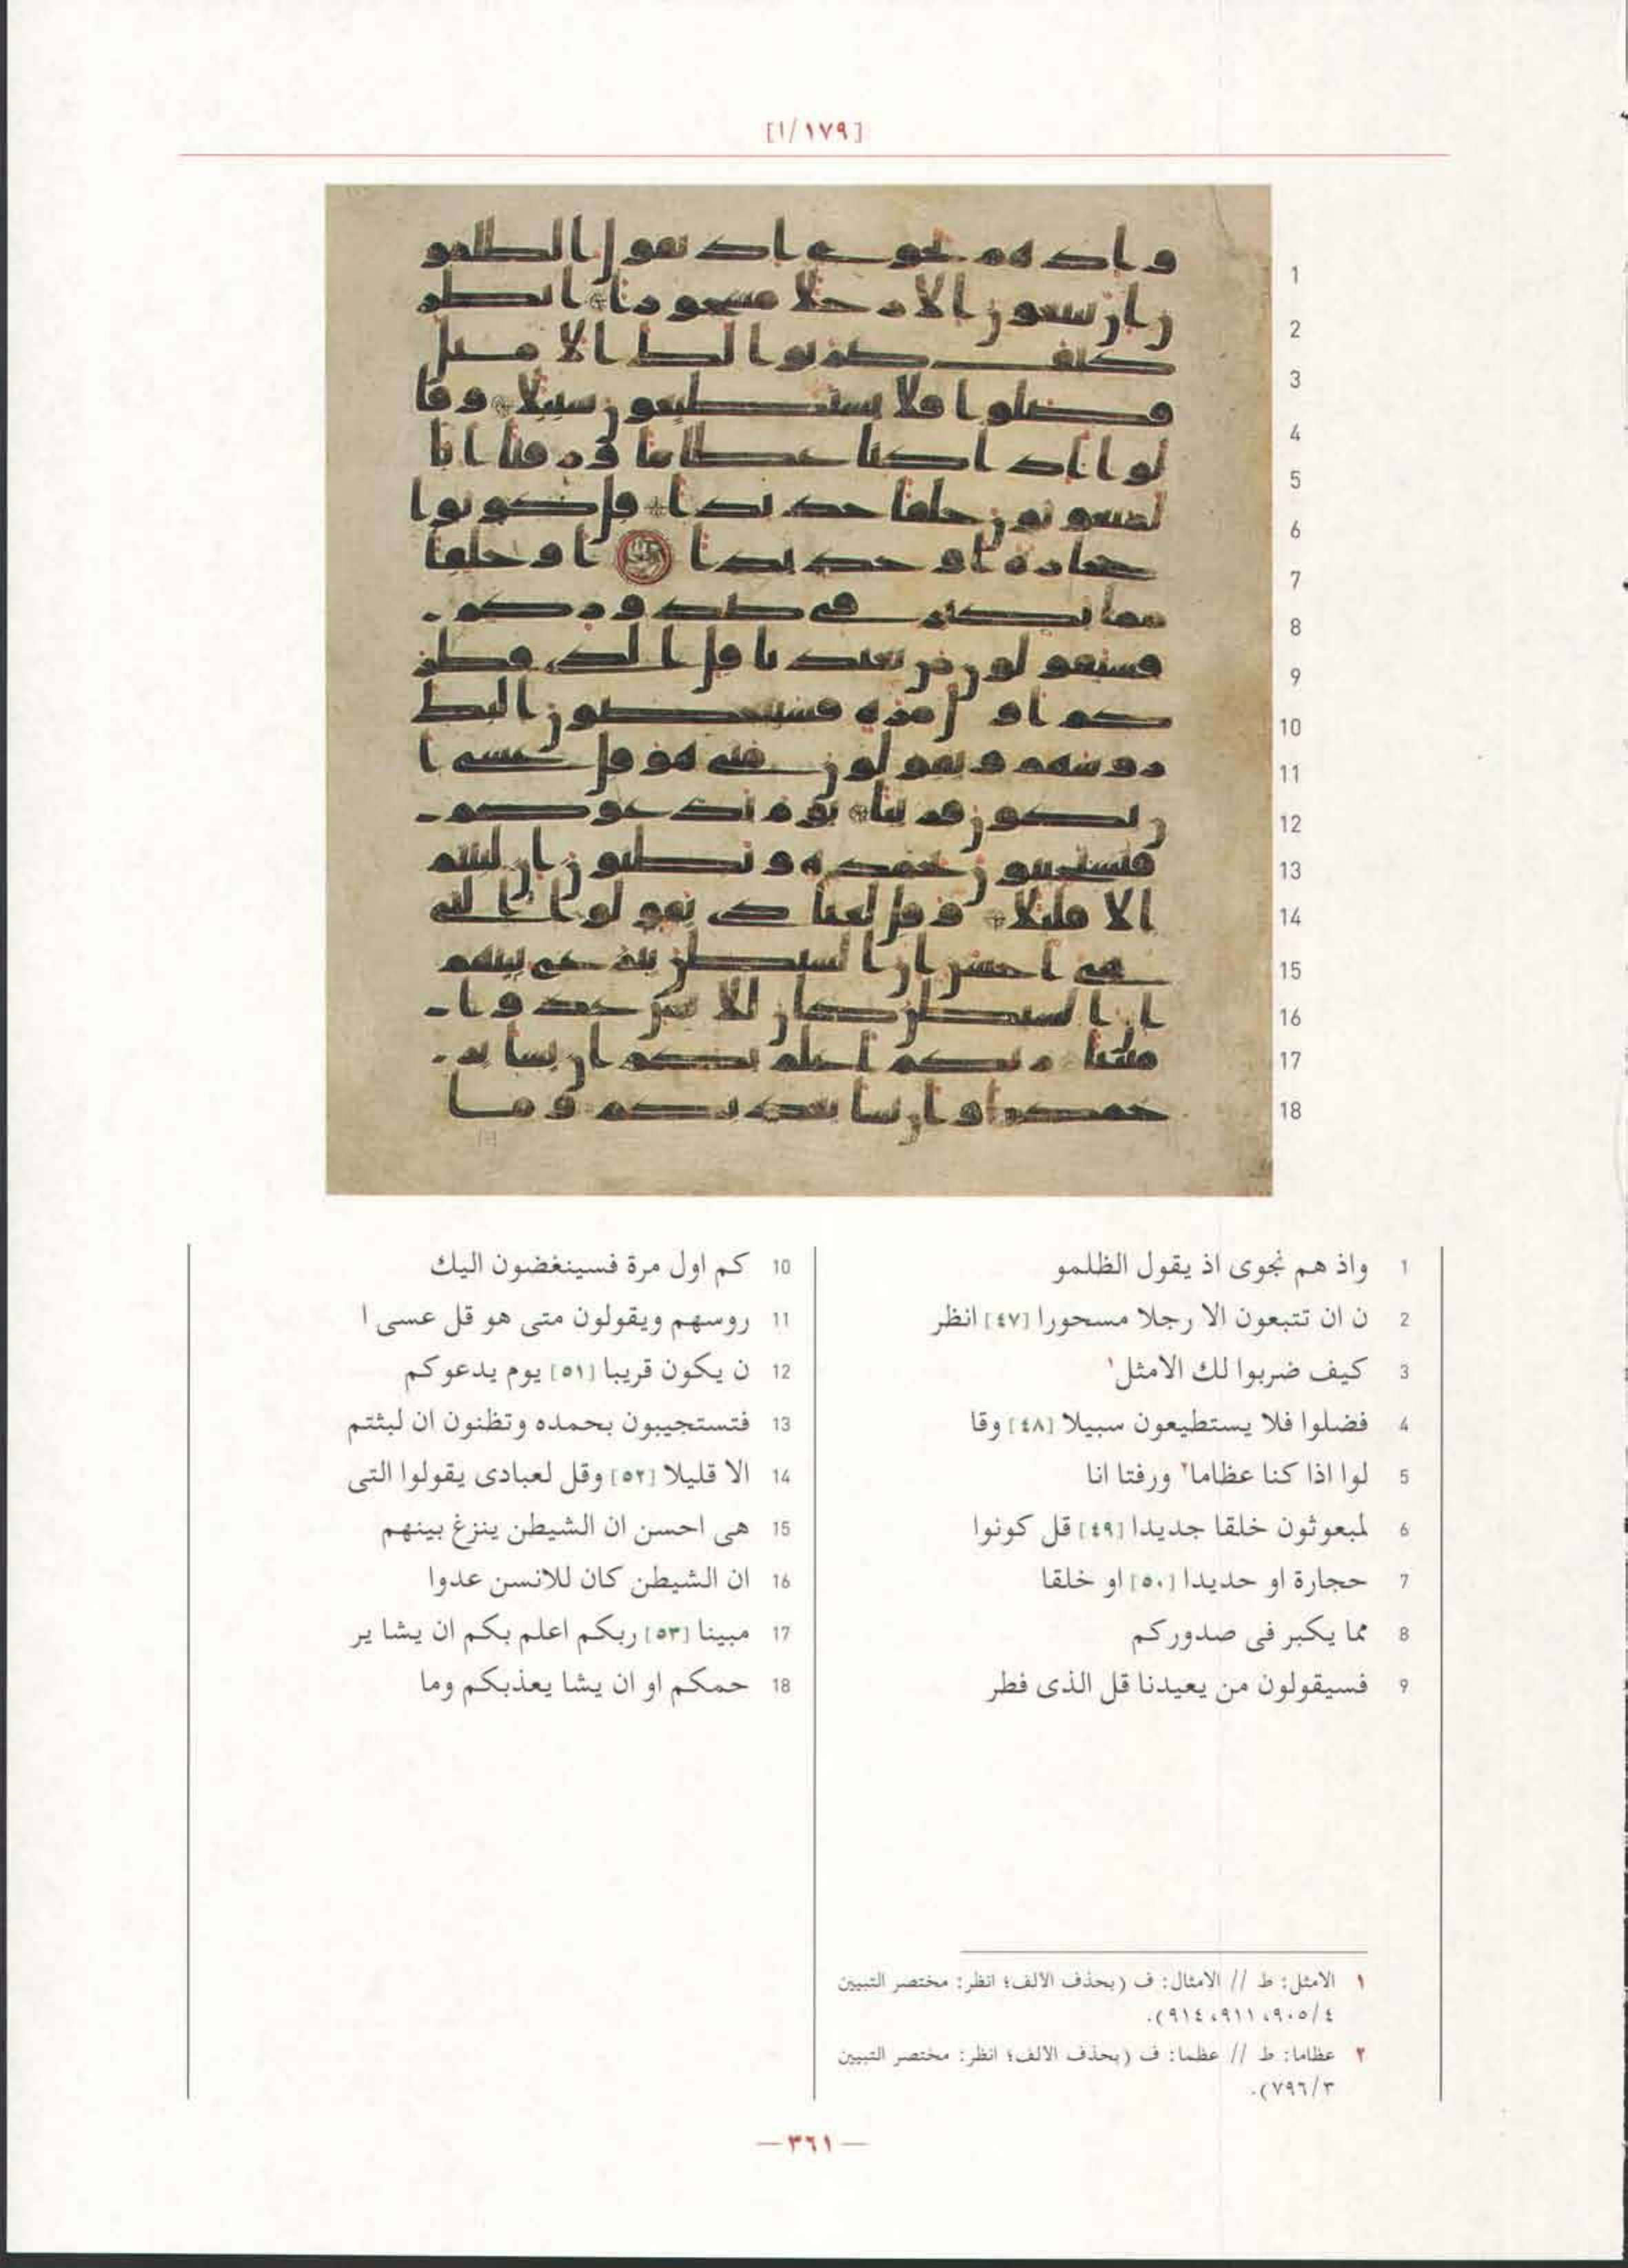 [١/١٧٩]
1 واذ هم نجوى اذ يقول الظلمو
2 ن ان تتبعون الا رجلا مسحورا [٤٧] انظر
3 كيف ضربوا لك الامثل١
4 فضلوا فلا يستطيعون سبيلا [٤٨] وقا
5 لوا اذا كنا عظاما٢ ورفتا انا
6 لمبعوثون خلقا جديدا [٤٩] قل كونوا
7 حجارة او حديدا [٥٠] او خلقا
8 مما يكبر فى صدوركم
9 فسيقولون من يعيدنا قل الذى فطر
10 كم اول مرة فسينغضون اليك
11 روسهم ويقولون متى هو قل عسى ا
12 ن يكون قريبا [٥١] يوم يدعوكم
13 فتستجيبون بحمده وتظنون ان لبثتم
14 الا قليلا [٥٢] وقل لعبادى يقولوا التى
15 هى احسن ان الشيطن ينزغ بينهم
16 ان الشيطن كان للانسن عدوا
17 مبينا [٥٣] ربكم اعلم بكم ان يشا ير
18 حمكم او ان يشا يعذبكم وما
١ الامثل: ط // الامثال: ف (بحذف الالف؛ انظر: مختصر التبيين
٤/٩٠٥، ٩١١، ٩١٤).
٢ عظاما: ط // عظما: ف (بحذف الالف؛ انظر: مختصر التبيين
٣/٧٩٦).
— ٣٦١ —